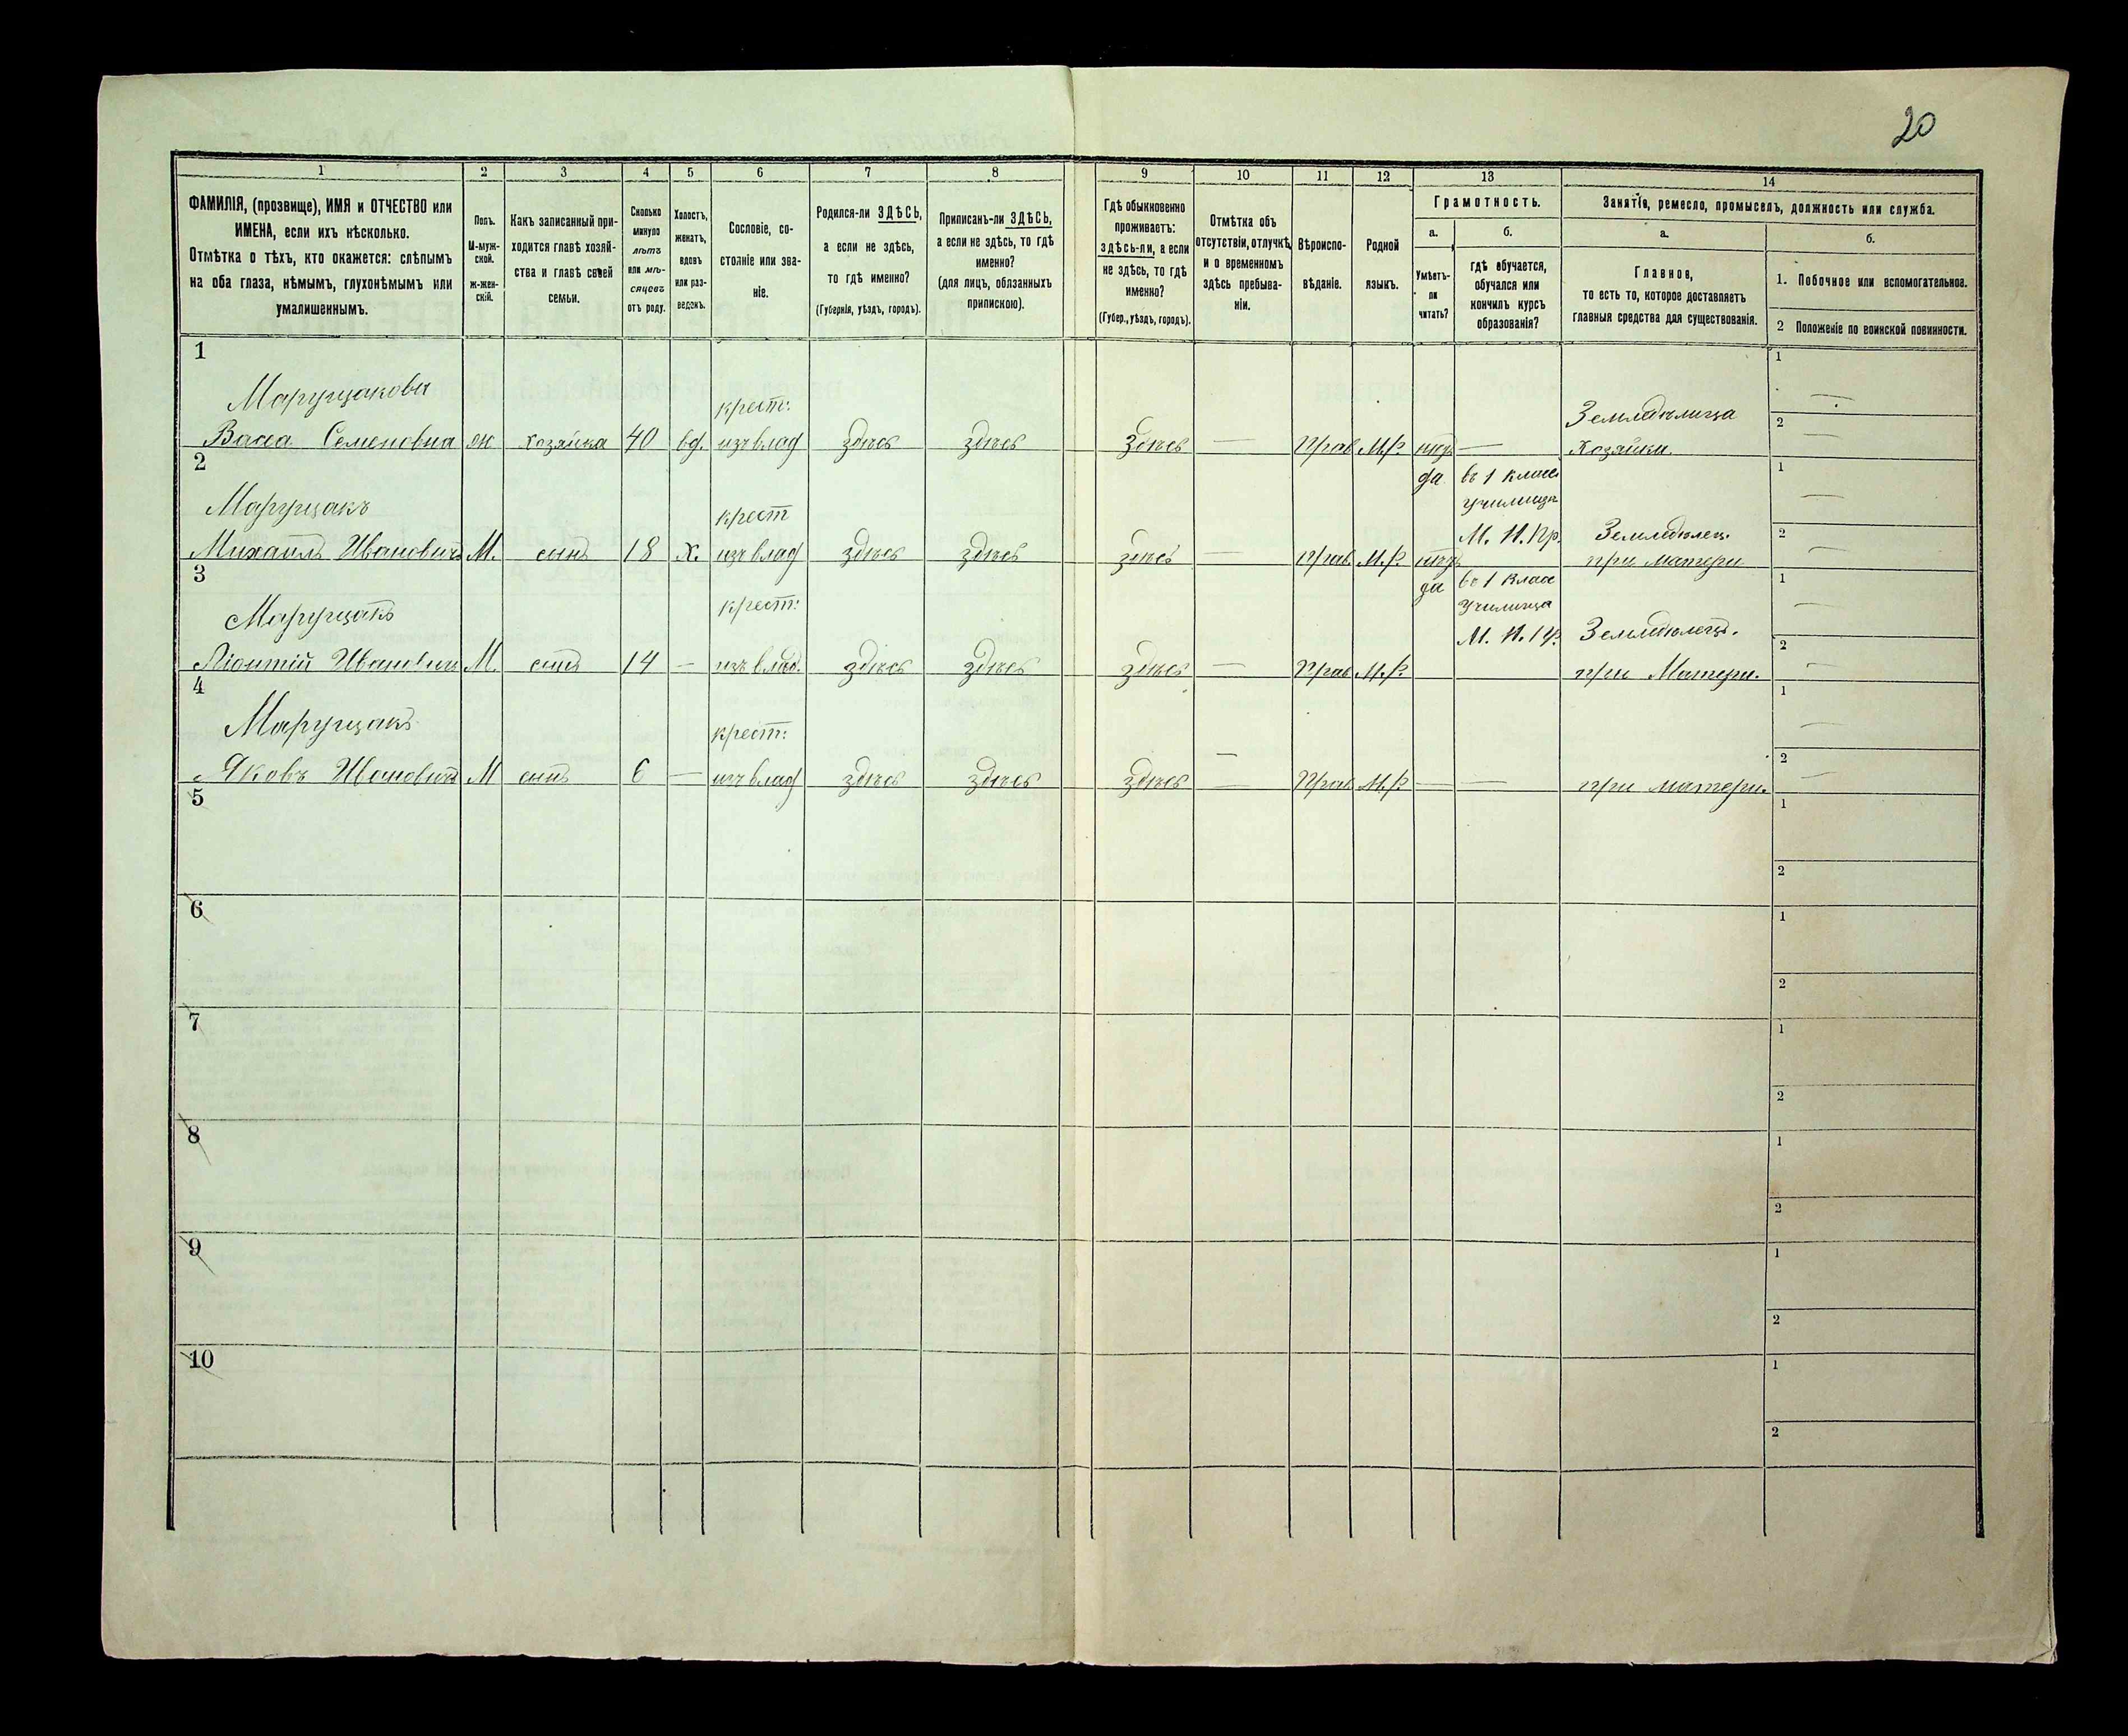 20
1 2 3 4 5 6 7 8 9 10 11 12 13 14
ФАМИЛІЯ, (прозвище), ИМЯ и ОТЧЕСТВО или
ИМЕНА, если ихъ нѣсколько.
Отмѣтка о тѣхъ, кто окажется: слѣпымъ
на оба глаза, нѣмымъ, глухонѣмымъ или
умалишеннымъ.
Полъ.
М-муж-
ской.
ж-жен-
скій.
Какъ записанный при-
ходится главѣ хозяй-
ства и главѣ своей
семьи.
Сколько
минуло
лѣтъ
или мѣ-
сяцевъ
отъ роду.
Холостъ,
женатъ,
вдовъ
или раз-
веденъ.
Сословіе, со-
стояніе или зва-
ніе.
Родился-ли ЗДѢСЬ,
а если не здѣсь,
то гдѣ именно?
(Губернія, уѣздъ, городъ).
Приписанъ-ли ЗДѢСЬ,
а если не здѣсь, то гдѣ
именно?
(для лицъ, обязанныхъ
припискою).
Гдѣ обыкновенно
проживаетъ:
здѣсь-ли, а если
не здѣсь, то гдѣ
именно?
(Губер., уѣздъ, городъ).
Отмѣтка объ
отсутствіи, отлучкѣ,
и о временномъ
здѣсь пребыва-
ніи.
Вѣроиспо-
вѣданіе.
Родной
языкъ.
Грамотность.
а.
Умѣетъ-
ли
читать?
б.
гдѣ обучается,
обучался или
кончилъ курсъ
образованія?
Занятіе, ремесло, промыселъ, должность или служба.
а.
Главное,
то есть то, которое доставляетъ
главныя средства для существованія.
б.
1. Побочное или вспомогательное.
2 Положеніе по воинской повинности.
1
Марущакова крест: Земледѣлица
Васса Семеновна ж хозяйка 40 вд. изъ влад здѣсь здѣсь здѣсь — Прав М.р. — Хозяйка
1 —
2 —
2
Марущакъ крест да въ 1 клас училища М. Н. Пр. Земледѣлец.
Михаилъ Ивановичъ М. сынъ 18 х. изъ влад здѣсь здѣсь здѣсь — Прав М.р. при матери
1 —
2 —
3
Марущакъ крест: да въ 1 клас училища М. Н. Пр. Земледѣлец.
Ивановичъ М. сынъ 14 — изъ влад. здѣсь здѣсь здѣсь — Прав М.р. при Матери.
1 —
2 —
4
Марущакъ крест: —
Яковъ Ивановичъ М сынъ 6 — изъ влад здѣсь здѣсь здѣсь — Прав М.р. — — при матери.
1 —
2 —
5
1
2
6
1
2
7
1
2
8
1
2
9
1
2
10
1
2